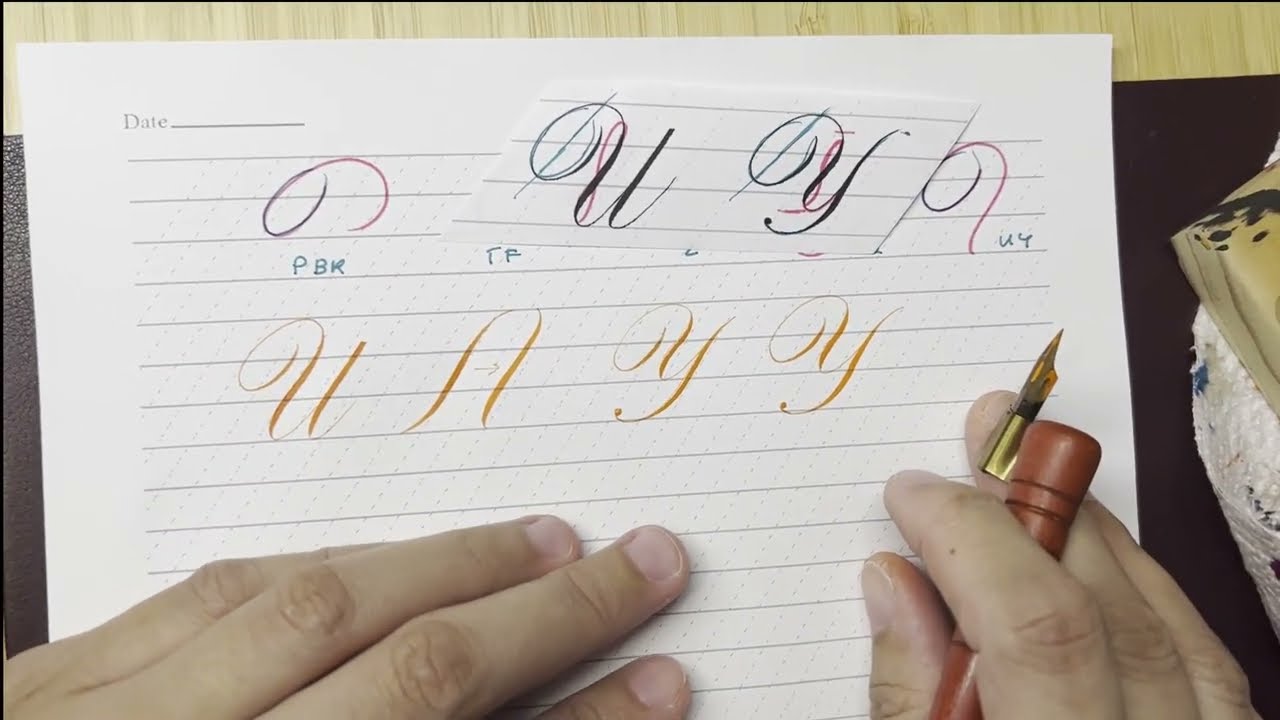 Date
U Y
PBR TF UY
U Y Y